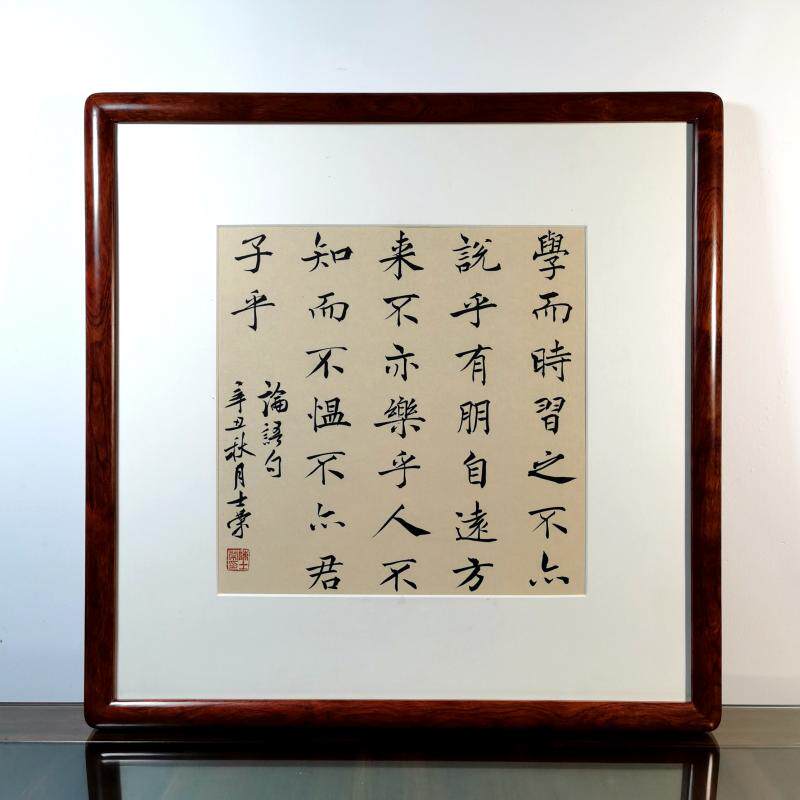 學而時習之不亦
説乎有朋自遠方
来不亦樂乎人不
知而不愠不亦君
子乎
論語句
辛丑秋月士榮